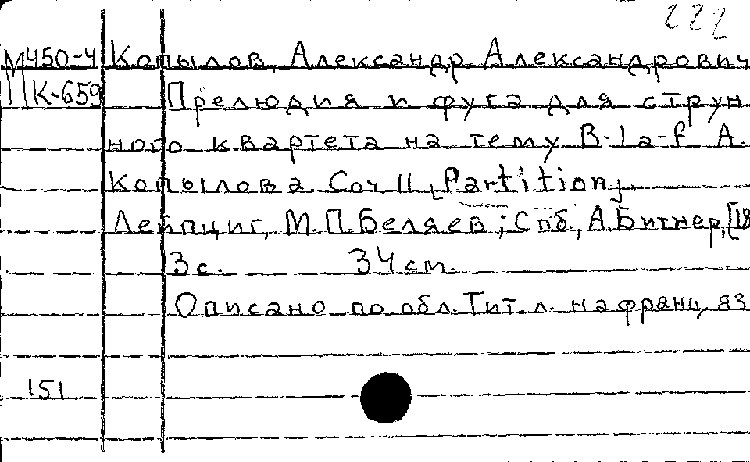 222
М450-4 Копылов, Александр Александрович
К-659 Прелюдия и фуга для струн
ного квартета на тему B-la-f А.
Копылова Соч 11 [Partition].
Лейпциг, М.П.Беляев; Спб, А.Битнер, [18
3 с. 34 см.
Описано по обл. Тит. л. на франц яз
151